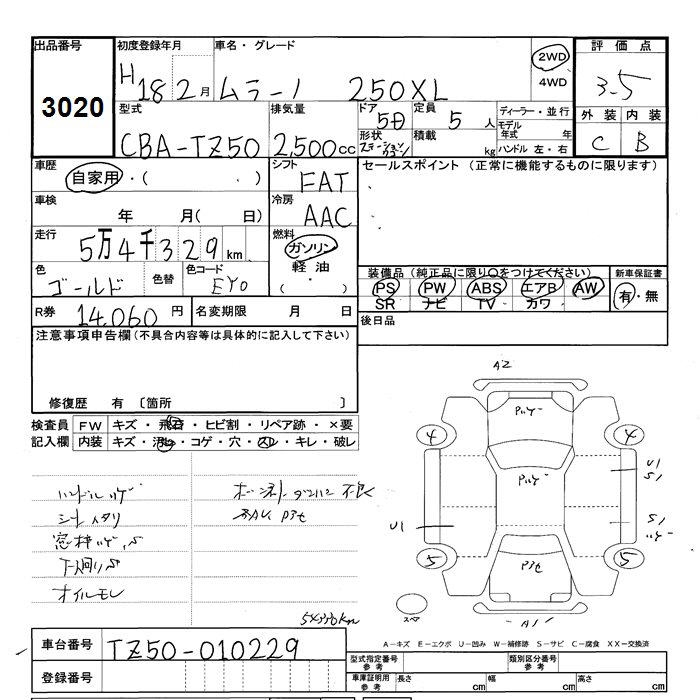 出品番号 初度登録年月 車名・グレード 評価点
3020 H 18 2月 ムラーノ 250XL 2WD 3.5
4WD
型式 排気量 ドア 定員 ディーラー・並行 外装 内装
CBA-TZ50 2,500cc 5D 5人 モデル年式 年 C B
形状 積載 kg ハンドル 左・右
車歴 シフト セールスポイント (正常に機能するものに限ります)
自家用・( ) FAT
車検 冷房
年 月( 日) AAC
走行 燃料
5万4千329km ガソリン
色 色替 色コード 軽油 装備品(純正品に限り○をつけてください) 新車保証書
ゴールド EY0 ( ・ ) PS PW ABS エアB AW 有・無
SR ナビ TV カワ
R券 14,060円 名変期限 月 日 後日品
注意事項申告欄(不具合内容等は具体的に記入して下さい)
修復歴 有 〔箇所 〕
検査員 FW キズ・飛石・ヒビ割・リペア跡・×要
記入欄 内装 キズ・汚れ・コゲ・穴・スレ・キレ・破レ
A2
4 4
U1
S1
U1 S1
5 5
A1
スペア
窓枠
オイルモレ
54330km
A-キズ E-エクボ U-凹み W-補修跡 S-サビ C-腐食 XX-交換済
車台番号 TZ50-010229
型式指定番号 参考 類別区分番号 参考
登録番号 車庫証明用 参考 長さ cm 幅 cm 高さ cm